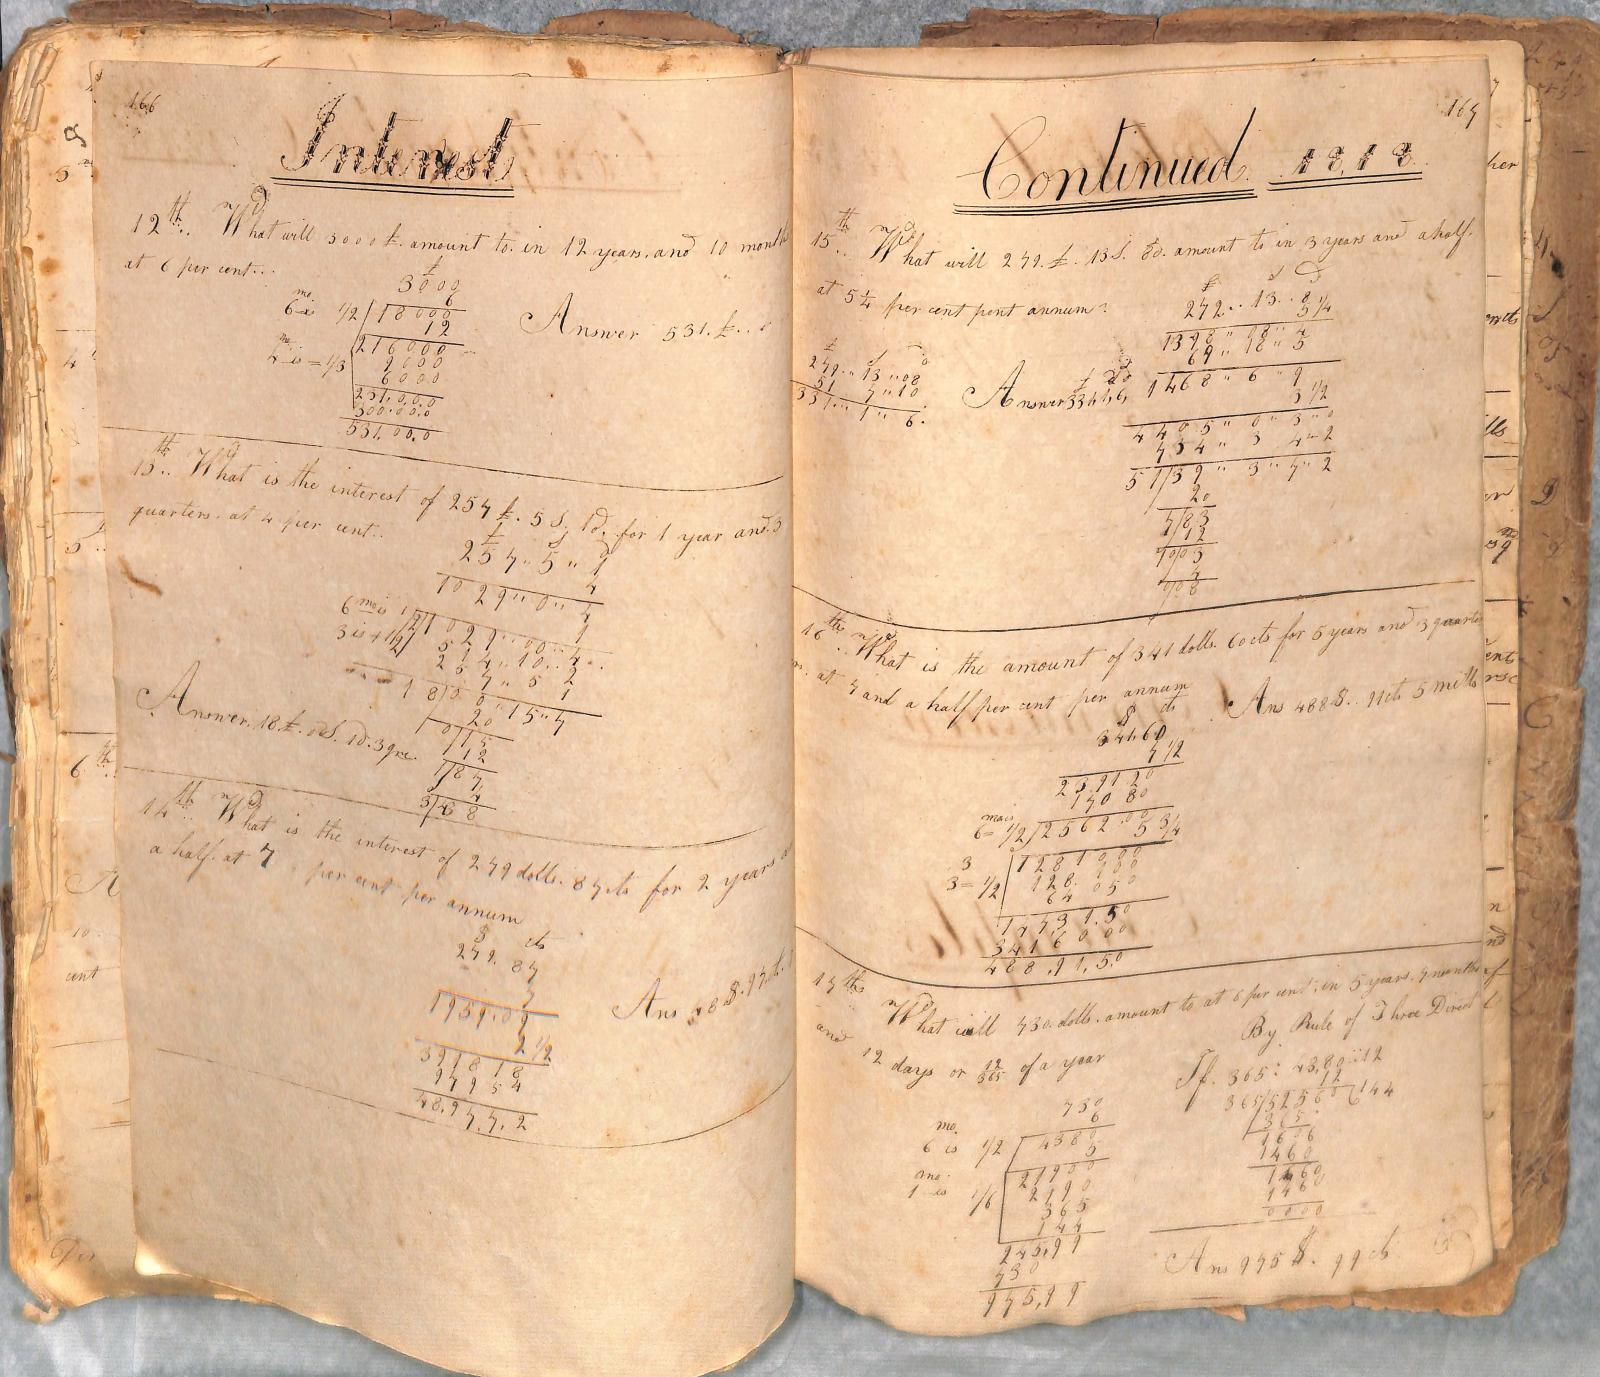 166
Interest
12th.. Wd What will 3000£. amount to. in 12 years. and 10 month
at 6 per cent...
£
3000
6
mo.
6 is 1/2 | 18000
12
216000
mo
4 is = 1/3 9000
6000
231,0,0,0
300.00.0
531.00.0
Answer 531.£..
13th.. Wd What is the interest of 257£. 5S. 1d. for 1 year and 3
quarters. at 4 per cent..
£ S
257 " 5 " 1
4
1029 " 0 " 4
1
6 mo is 1/2 | 1029 " 00 " 4
3 is 1/2 514 " 10 .. 2
257 " 5 " 1
18|00 " 15 " 7
20
0/15
12
1/87
4
3/48
Answer. 18£. 0S. 1d. 3qrs.
14th.. Wd What is the interest of 279 dolls. 87cts for 2 years
a half. at 7 per cent per annum
$ cts
279. 87
7
1959.09
2 1/2
391818
97954
48,97,7,2
Ans 48 $. 97
167
Continued 1818
15th.. Wd What will 279.£. 13S. 8d. amount to in 3 years and a half.
at 5 1/4 per cent pent annum?
£ S D
279.. 13.. 8
5 1/4
1398 " 18 " 4
69 " 18 " 5
1468 " 6 " 9
3 1/2
4405 " 0 " 3 " 0
734 " 3 4 " 2
51/39 " 3 " 7 " 2
20
7/83
12
10/03
4
0/08
£ S D
279. " 13 " 08
51 7 " 10
331 " 1 " 6.
Answer 331,1,6,
16th Wd What is the amount of 341 dolls. 60cts for 5 years and 3 quarte
rs. at 7 and a half per cent per annum
$ cts
341.60
7 1/2
239120
17080
mo is
6 = 1/2 | 2562.00
5 3/4
3 1281000
3 = 1/2 128. 100
64 050
1473150
3416000
488.91,50
Ans 488$.. 91cts 5 mills
17th Wd What will 730. dolls. amount to at 6 per cent; in 5 years. 7 months
and 12 days or 12/365 of a year
By Rule of Three Direct
If. 365 : 43,80 :: 12
12
365/52560(144
365
1606
1460
1460
1460
0000
730
6
mo.
6 is 1/2 4380
5
21900
mo.
1 is 1/6 2190
365
144
245,99
730
975,99
Ans 975 $. 99 cts